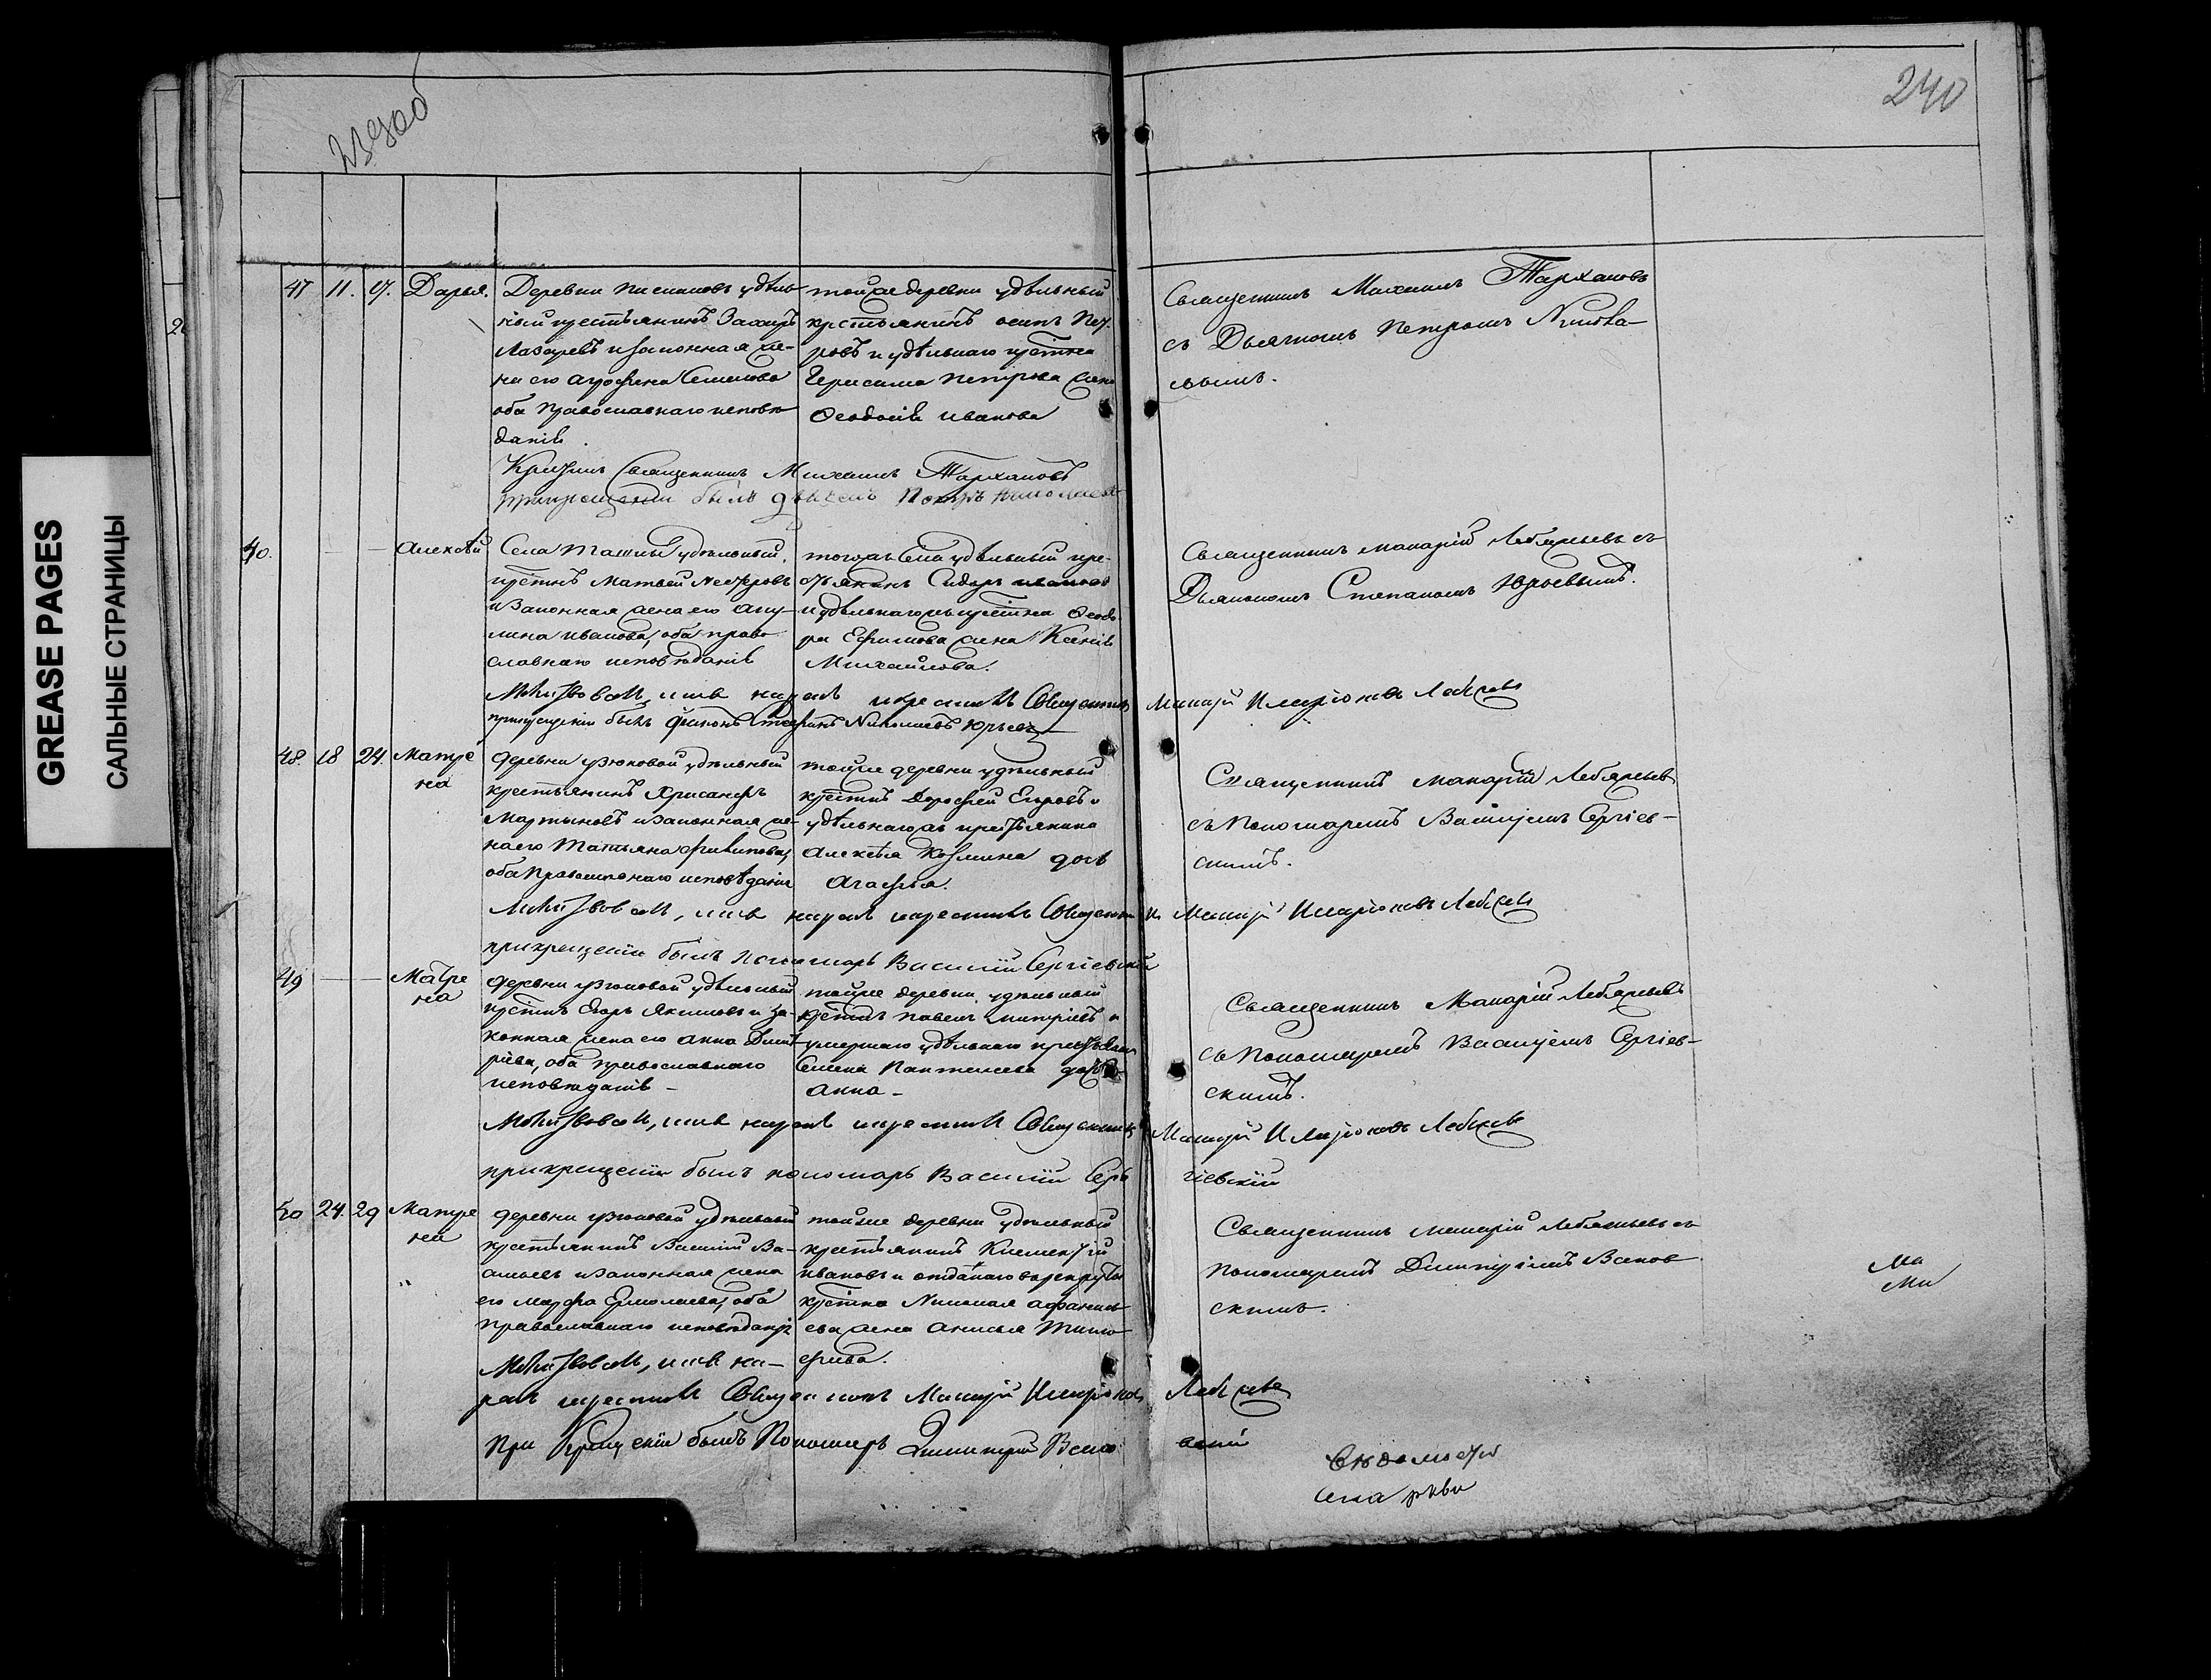 GREASE PAGES
САЛЬНЫЕ СТРАНИЦЫ
240
47 11. 17. Дарья.
Деревни удѣль-
ный крестьянинъ Захаръ
Лазаревъ и законная же-
на его Агрофена Семенова
оба православнаго исповѣ-
данія.
той же деревни удѣльный
крстьянинъ осипъ Пет
ровъ и удѣльнаго крстна
Герасима петрова жена
Ѳеодосія иванова
Священникъ Михаилъ Тархановъ
съ Дьячкомъ Петромъ
Крестилъ Священникъ Михаилъ Тархановъ
при крещеніи былъ дьячекъ Петръ
40. — — Алексѣй
Села Ташлы удѣльный
крстнъ Матвей Несторовъ
и Законная жена его Аку-
лина иванова, оба право
славнаго исповѣданія
тогожъ Села удѣльный кре-
стьянинъ Сидоръ ивановъ
и удѣльнагожъ крстна Ѳеодо-
ра Ефимова жена Ксенія
Михайлова.
Священникъ макарій Лебяжьевъ съ
Дьякономъ Степаномъ Юрьевымъ.
Молитвовалъ, имя нарекъ и крестилъ Священникъ Макарій Иларіоновъ Лебяжьевъ
при крещеніи былъ дьяконъ Стефанъ Николаевъ Юрьевъ
48. 18 24. Матре
на
деревни узюковой удѣльный
крестьянинъ Хрисанфъ
Мартыновъ и Законная же-
на его Татьяна Филипова,
оба Православнаго исповѣданія
той же деревни удѣльный
крстнъ Дорофей Егоровъ и
удѣльнагожъ крестьянина
Алексѣя Козмина дочь
Агафья.
Священникъ макарій Лебяжьевъ
съ Пономаремъ Василіемъ Сергіев-
скимъ.
Молитвовалъ, имя нарекъ и крестилъ Священникъ Макарій Иларіоновъ Лебяжьевъ
при крещеніи былъ пономарь Василій Сергіевскій
49 — — Матре
на
деревни узюковой удѣльный
крстнъ Егоръ Якимовъ и за-
конная жена его анна Дмит-
ріева, оба православнаго
исповѣданія —
той же деревни удѣльный
крстнъ павелъ митріевъ и
умершаго удѣльнаго крестьянина
Семена Пантелеева дочь
анна —
Священникъ Макарій Лебяжьевъ
съ Пономаремъ Василіемъ Сергіев-
скимъ.
Молитвовалъ, имя нарекъ и крестилъ Священникъ Макарій Иларіоновъ Лебяжьевъ
при крещеніи былъ пономарь Василій Сергіевскій
50 24. 29 Матре
на
деревни узюковой удѣльный
крестьянинъ Василій Ва-
сильевъ и Законная жена
его марфа Ермолаева, оба
православнаго исповѣданія
той же деревни удѣльный
крестьянинъ Климентій
ивановъ и отданнаго въ рекруты
крстна Николая афанась-
ева жена анисья Тимо-
феива.
Священникъ макарій Лебяжьевъ съ
пономаремъ Димитріемъ
скимъ.
Ма
Ми
Молитвовалъ, имя на-
рекъ и крестилъ Священникъ Макарій Иларіоновъ Лебяжьевъ
при Крещеніи былъ Пономарь Димитрій